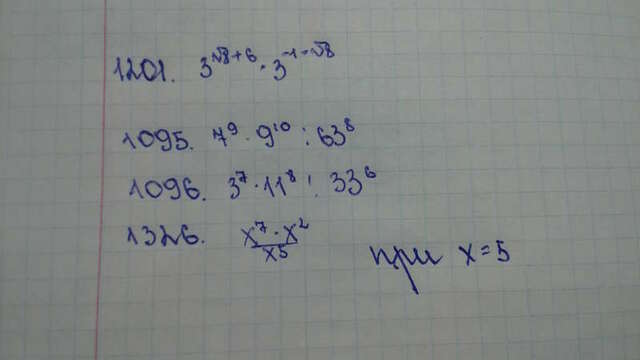 1201. 3^(√8+6) · 3^(-1-√8)
1095. 7⁹ · 9¹⁰ : 63⁸
1096. 3⁷ · 11⁸ : 33⁶
1326. (x⁷ · x²)/x⁵ при x=5